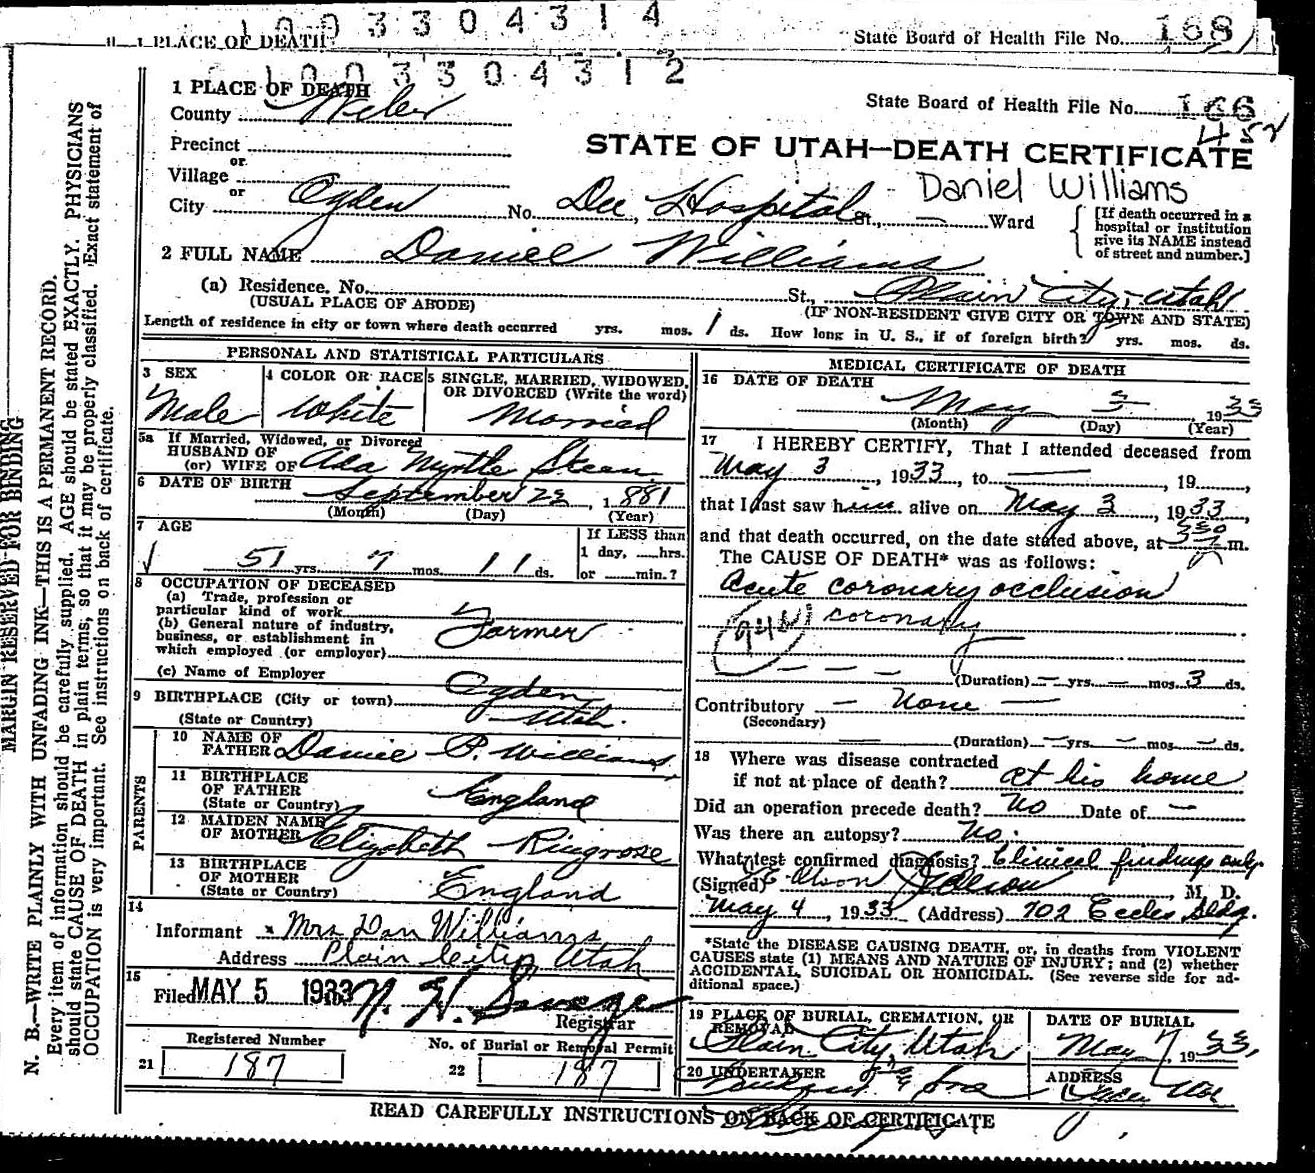 1003304314
1 PLACE OF DEATH
State Board of Health File No. 168
1003304312
1 PLACE OF DEATH
State Board of Health File No. 166
County Weber
452
STATE OF UTAH—DEATH CERTIFICATE
Precinct
or
Village
or
Daniel Williams
City Ogden No. Dee Hospital St., — Ward
[If death occurred in a
hospital or institution
give its NAME instead
of street and number.]
2 FULL NAME Daniel Williams
(a) Residence. No. St., Plain City, Utah
(USUAL PLACE OF ABODE)
(IF NON-RESIDENT GIVE CITY OR TOWN AND STATE)
Length of residence in city or town where death occurred yrs. mos. 1 ds. How long in U. S., if of foreign birth? yrs. mos. ds.
PERSONAL AND STATISTICAL PARTICULARS
3 SEX
Male
4 COLOR OR RACE
White
5 SINGLE, MARRIED, WIDOWED,
OR DIVORCED (Write the word)
Married
5a If Married, Widowed, or Divorced
HUSBAND OF
(or) WIFE OF Ada Myrtle Steen
6 DATE OF BIRTH September 22, 1881
(Month) (Day) (Year)
7 AGE
51 yrs. 7 mos. 11 ds.
If LESS than
1 day, hrs.
or min.?
8 OCCUPATION OF DECEASED
(a) Trade, profession or
particular kind of work
(b) General nature of industry,
business, or establishment in
which employed (or employer)
Farmer
(c) Name of Employer
9 BIRTHPLACE (City or town) Ogden
(State or Country) Utah
PARENTS
10 NAME OF
FATHER Daniel P. Williams
11 BIRTHPLACE
OF FATHER
(State or Country) England
12 MAIDEN NAME
OF MOTHER Elizabeth Ringrose
13 BIRTHPLACE
OF MOTHER
(State or Country) England
14
Informant Mrs Dan Williams
Address Plain City Utah
15
Filed MAY 5 1933
Registrar
Registered Number
21 187
No. of Burial or Removal Permit
22 187
MEDICAL CERTIFICATE OF DEATH
16 DATE OF DEATH
May 3, 1933
(Month) (Day) (Year)
17 I HEREBY CERTIFY, That I attended deceased from
May 3, 1933, to —, 19
that I last saw him alive on May 3, 1933,
and that death occurred, on the date stated above, at m.
The CAUSE OF DEATH* was as follows:
Acute coronary occlusion
coronary
(Duration) — yrs. — mos. 3 ds.
Contributory — None —
(Secondary)
(Duration) — yrs. — mos. — ds.
18 Where was disease contracted
if not at place of death? at his home
Did an operation precede death? No Date of —
Was there an autopsy? No.
What test confirmed diagnosis? Clinical findings only.
(Signed) M. D.
May 4, 1933 (Address) 702 Eccles Bldg.
*State the DISEASE CAUSING DEATH, or, in deaths from VIOLENT
CAUSES state (1) MEANS AND NATURE OF INJURY; and (2) whether
ACCIDENTAL, SUICIDAL OR HOMICIDAL. (See reverse side for ad-
ditional space.)
19 PLACE OF BURIAL, CREMATION, OR
REMOVAL
Plain City, Utah
DATE OF BURIAL
May 7, 1933
20 UNDERTAKER
ADDRESS
READ CAREFULLY INSTRUCTIONS ON BACK OF CERTIFICATE
MARGIN RESERVED FOR BINDING
N. B.—WRITE PLAINLY WITH UNFADING INK—THIS IS A PERMANENT RECORD.
Every item of information should be carefully supplied. AGE should be stated EXACTLY. PHYSICIANS
should state CAUSE OF DEATH in plain terms, so that it may be properly classified. Exact statement of
OCCUPATION is very important. See instructions on back of certificate.